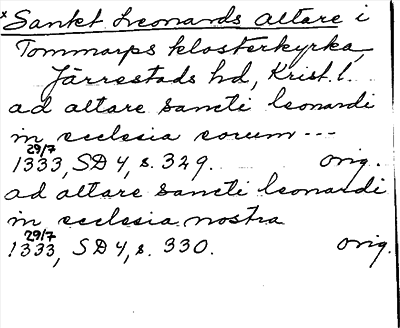 × Sankt Leonards altare i
Tommarps klosterkyrka,
Järrestads hd, Krist. l.
ad altare sancti leonardi
in ecclesia eorum ---
29/7
1333, SD 4, s. 329. orig.
ad altare sancti leonardi
in ecclesia nostra
29/7
1333, SD 4, s. 330. orig.